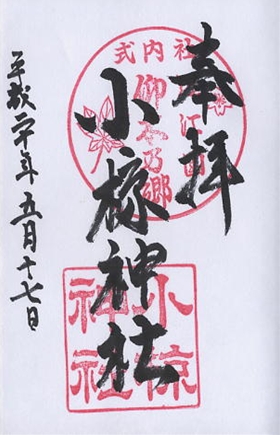 奉拝
式内社
仰木乃郷
小椋神社
小椋
神社
平成二十年五月十七日